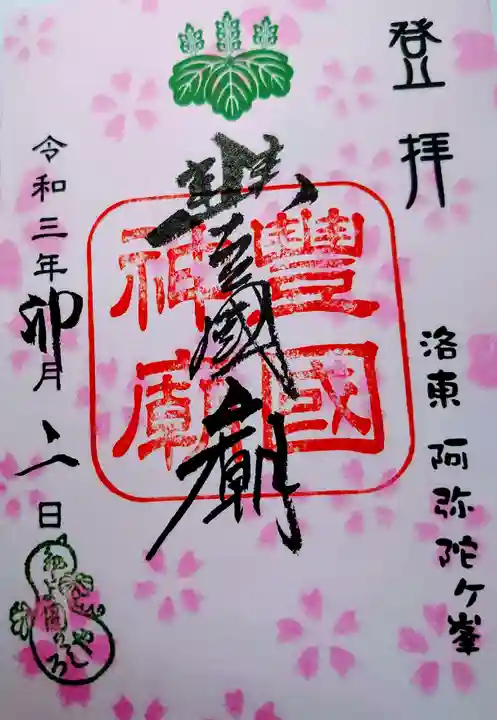 登拝
洛東 阿弥陀ケ峯
豊国廟
豐國
神廟
令和三年卯月 日